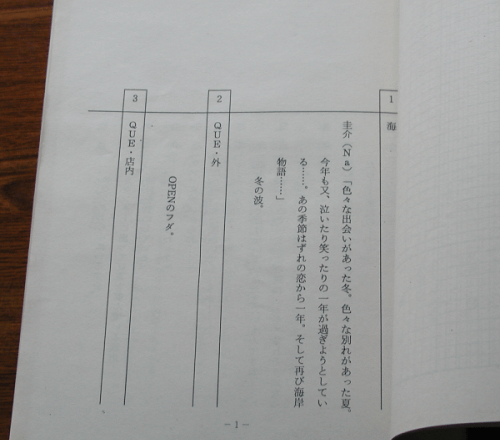 1 海
圭介（Ｎａ）「色々な出会いがあった冬。色々な別れがあった夏。
今年も又、泣いたり笑ったりの一年が過ぎようとしてい
る……。あの季節はずれの恋から一年。そして再び海岸
物語……」
冬の波。
2 ＱＵＥ・外
OPENのフダ。
3 ＱＵＥ・店内
－1－